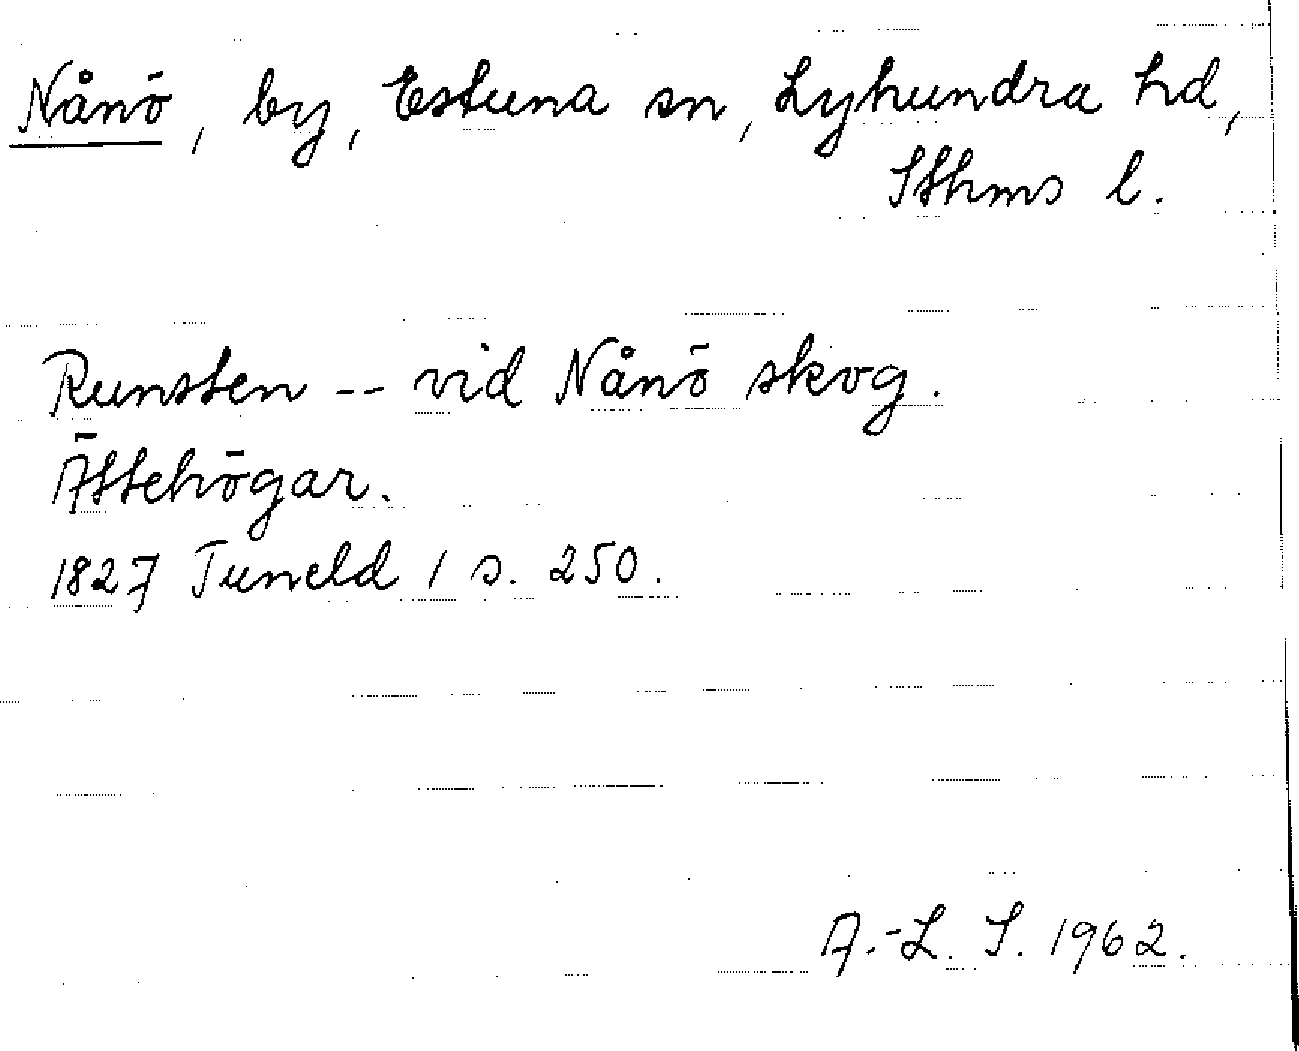 Nånö, by, Estuna sn, Lyhundra hd,
Sthms l.
Runsten -- vid Nånö skog.
Ättehögar.
1827 Tuneld 1 s. 250.
A.-L. S. 1962.